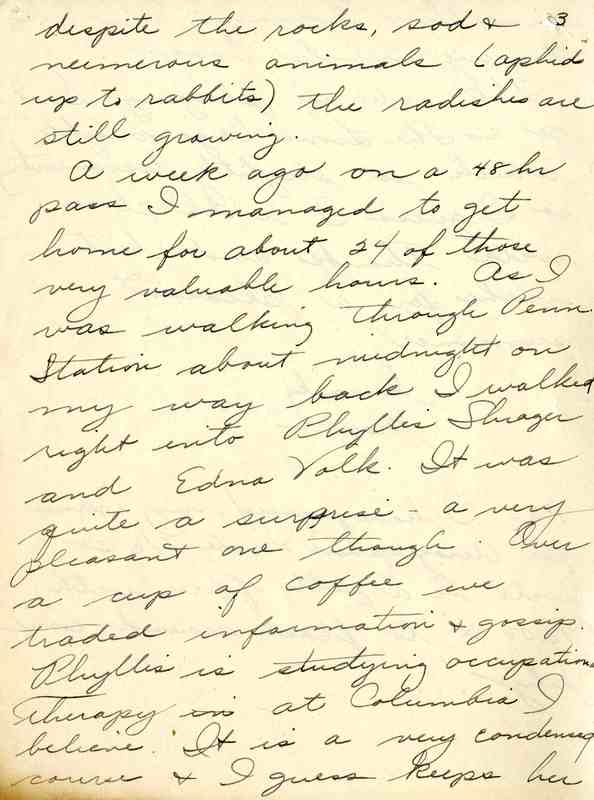 3
despite the rocks, sod &
neumerous animals (aphid
up to rabbits) the radishes are
still growing.
A week ago on a 48 hr
pass I managed to get
home for about 24 of those
very valuable hours. As I
was walking through Penn.
Station about midnight on
my way back I walked
right into Phyllis Shrager
and Edna Volk. It was
quite a surprise - a very
pleasant one through. Over
a cup of coffee we
traded information & gossip.
Phyllis is studying occupationa
Therapy in at Columbia I
believe. It is a very condensed
course & I guess keeps her